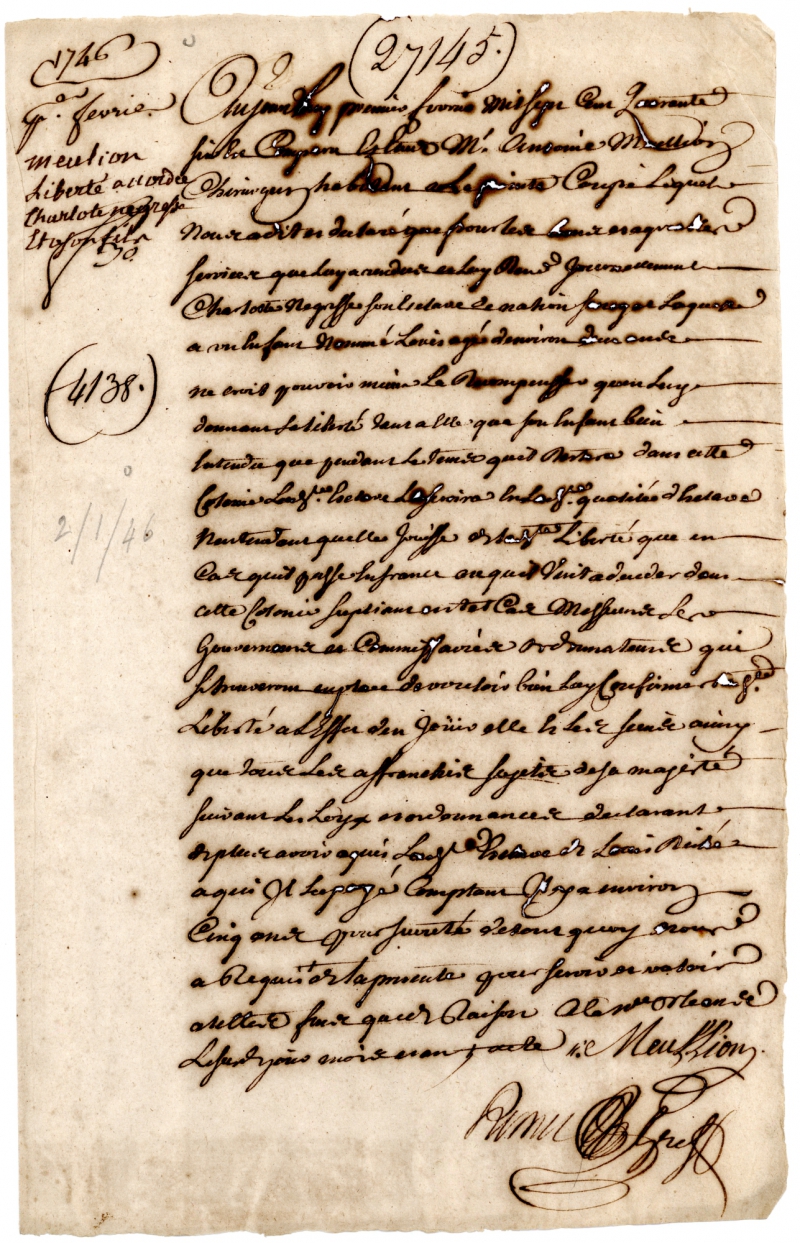 1746
(27145.)
pr. fevrier.
meullion
Liberté accordée
Charlote negresse
Et a son fils
Aujourdhuy premier fevrier Mil sept Cent Quarante
six est Comparu Mr. Antoine Meullion
Chirurgien habitant a La pointe Coupée Lequel
Nous a dit et declaré que pour les bons et agreables
services que luy a rendus et luy Rend Journellement
Charlotte Negresse son Esclave de nation Laquelle
a un Enfant Nommé Louis agé d'environ deux ans
(4138.)
ne croit pouvoir mieux La Recompenser qu'en Luy
donnant La liberté tant a elle que son Enfant bien
Entendu que pendant Le tems quil Restera dans cette
2/1/46
Colonie Lad. Esclave Le servira En Lad. qualitée d'Esclave
quelle Jouisse de lad. Liberté que en
Cas quil passe En france ou quil Vint a deceder dans
cette Colonie supliant en tel Cas Messieurs Les
Gouverneurs et Commissaires ordonnateurs qui
se trouveront en place de vouloir bien Luy Confirmer
Liberté a L'Effet d'en Joüir elle Et Les siens ainsy
que tous Les affranchis sujets de sa majesté
suivant Les Loyx et ordonnances declarant
de plus avoir aquis Lad. Esclave de Louis
a qui Jl La payé Comptant Jl y a environ
Cinq ans pour sureté de tout quoy
a Requis de la presente pour servir et valoir
a telles fins que de Raison A la nlle orleans
Les jour mois et an Meullion